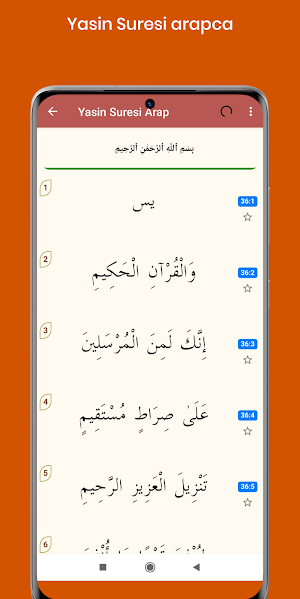 Yasin Suresi arapca
Yasin Suresi Arap
بِسْمِ ٱللَّهِ ٱلرَّحْمَٰنِ ٱلرَّحِيمِ
1
يس
36:1
2
وَالْقُرْآنِ الْحَكِيمِ
36:2
3
إِنَّكَ لَمِنَ الْمُرْسَلِينَ
36:3
4
عَلَىٰ صِرَاطٍ مُسْتَقِيمٍ
36:4
5
تَنْزِيلَ الْعَزِيزِ الرَّحِيمِ
36:5
6